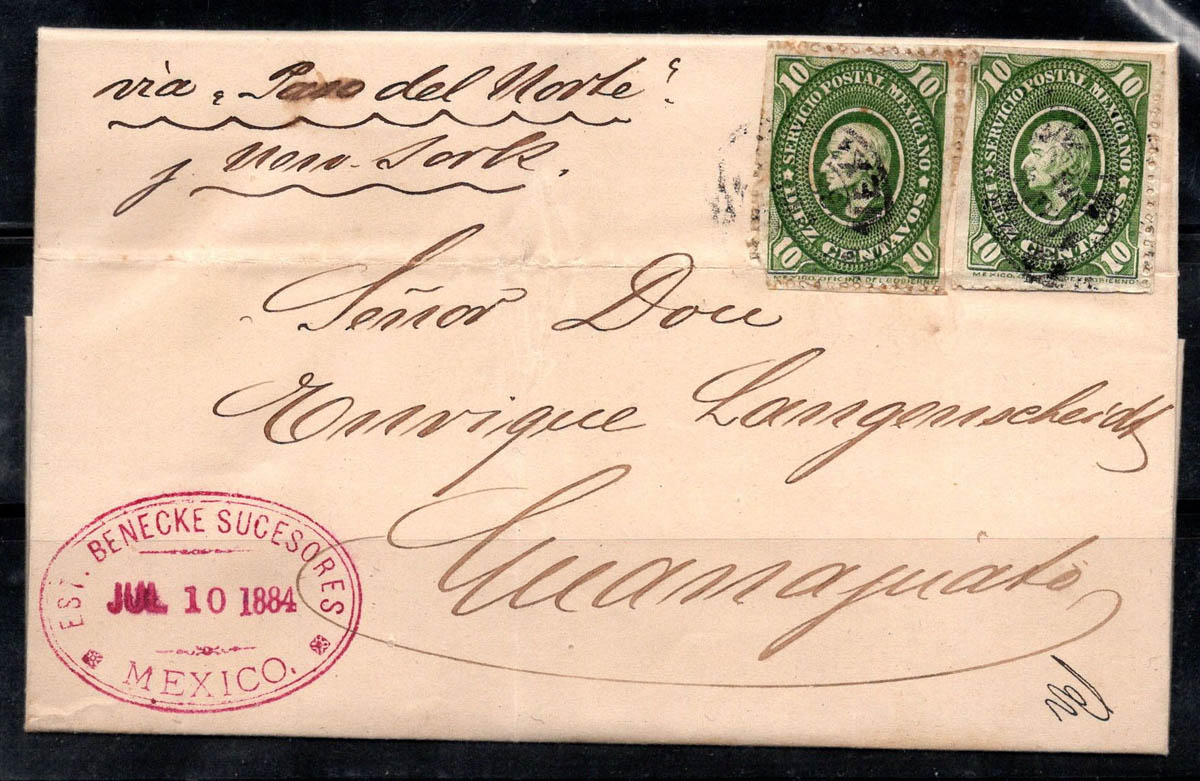 via "Paso del Norte"
y New-York.
10 SERVICIO POSTAL MEXICANO 10
10 DIEZ CENTAVOS 10
MEXICO. OFICINA DEL GOBIERNO
10 SERVICIO POSTAL MEXICANO 10
10 DIEZ CENTAVOS 10
MEXICO. GOBIERNO
Señor Don
Enrique Langenscheidt
Guanajuato
EST. BENECKE SUCESORES
JUL 10 1884
MEXICO.